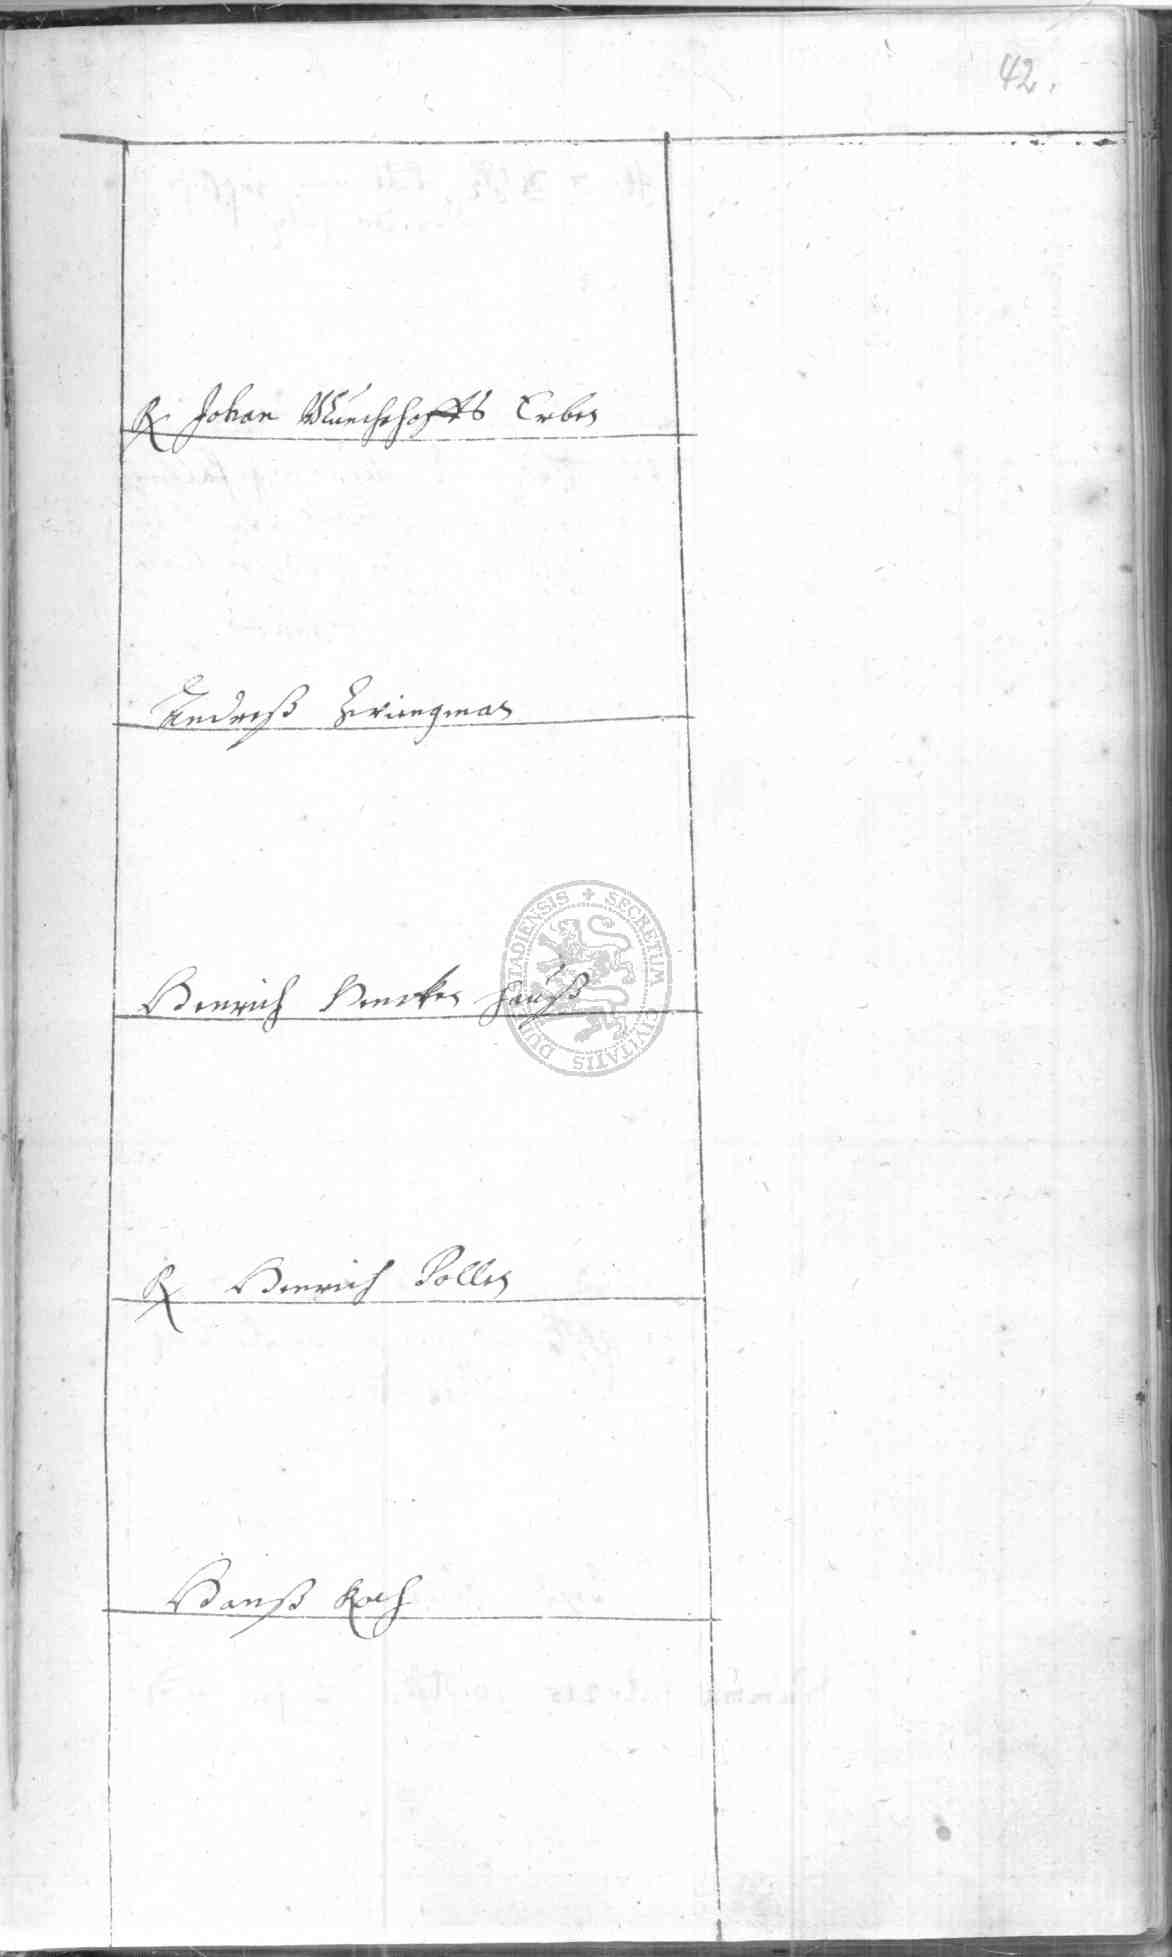 42.
R Johan Munchhoffs Erben
Andreß Zwingman
Henrich Hencken Hauß
R Henrich Pollen
Hanß Koch
SECRETUM CIVITATIS DUDERSTADIENSIS